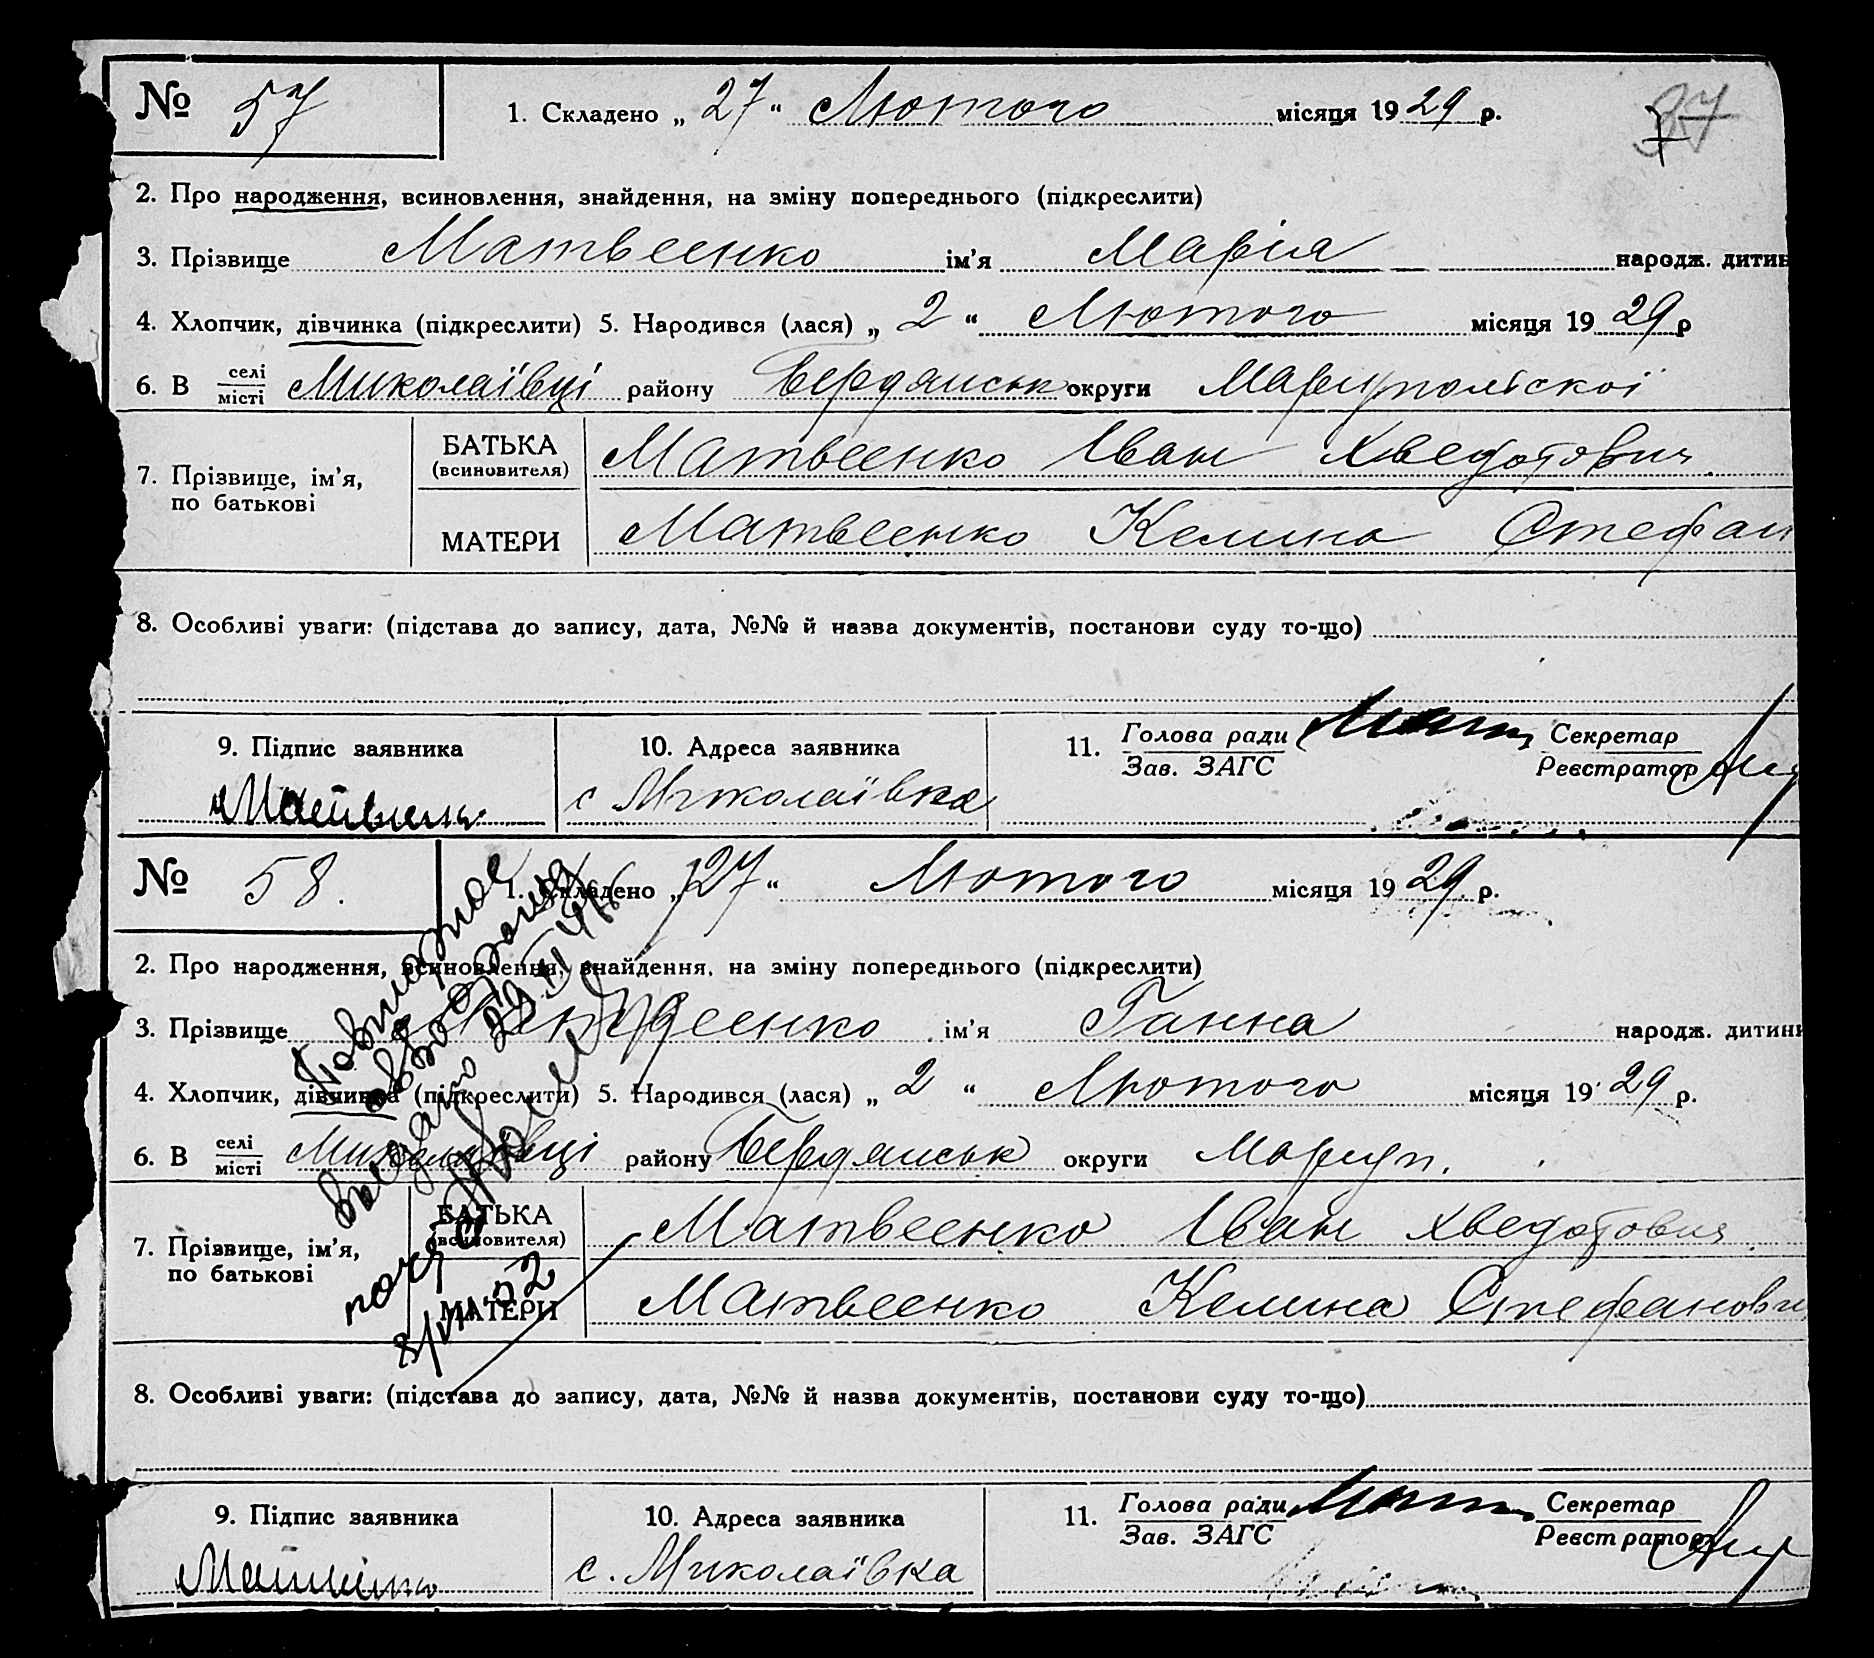 № 57 1. Складено „ 27 “ Лютого місяця 1929 р. 37
2. Про народження, всиновлення, знайдення, на зміну попереднього (підкреслити)
3. Прізвище Матвеенко ім'я Марія народж. дитин
4. Хлопчик, дівчинка (підкреслити) 5. Народився (лася) „ 2 “ Лютого місяця 1929 р
6. В селі місті Миколаївці району Бердянськ округи Маріупольскої
7. Прізвище, ім'я, по батькові
БАТЬКА (всиновителя) Матвеенко Іван Хведотович
МАТЕРИ Матвеенко Келина Стефан
8. Особливі уваги: (підстава до запису, дата, №№ й назва документів, постанови суду то-що)
9. Підпис заявника 10. Адреса заявника 11. Голова ради Секретар
Зав. ЗАГС Реєстратор
с Миколаївка
№ 58. 1. Складено „ 27 “ Лютого місяця 1929 р.
2. Про народження, всиновлення, знайдення, на зміну попереднього (підкреслити)
3. Прізвище ім'я Ганна народж. дитини
4. Хлопчик, дівчинка (підкреслити) 5. Народився (лася) „ 2 “ Лютого місяця 1929 р.
6. В селі місті Миколаївці району Бердянськ округи Маріуп.
7. Прізвище, ім'я, по батькові
БАТЬКА (всиновителя) Матвеенко Іван Хведотович
МАТЕРИ Матвеенко Келина Стефанов
Повторное
выдано
8/VII-52
8. Особливі уваги: (підстава до запису, дата, №№ й назва документів, постанови суду то-що)
9. Підпис заявника 10. Адреса заявника 11. Голова ради Секретар
Зав. ЗАГС Реєстратор
с. Миколаївка